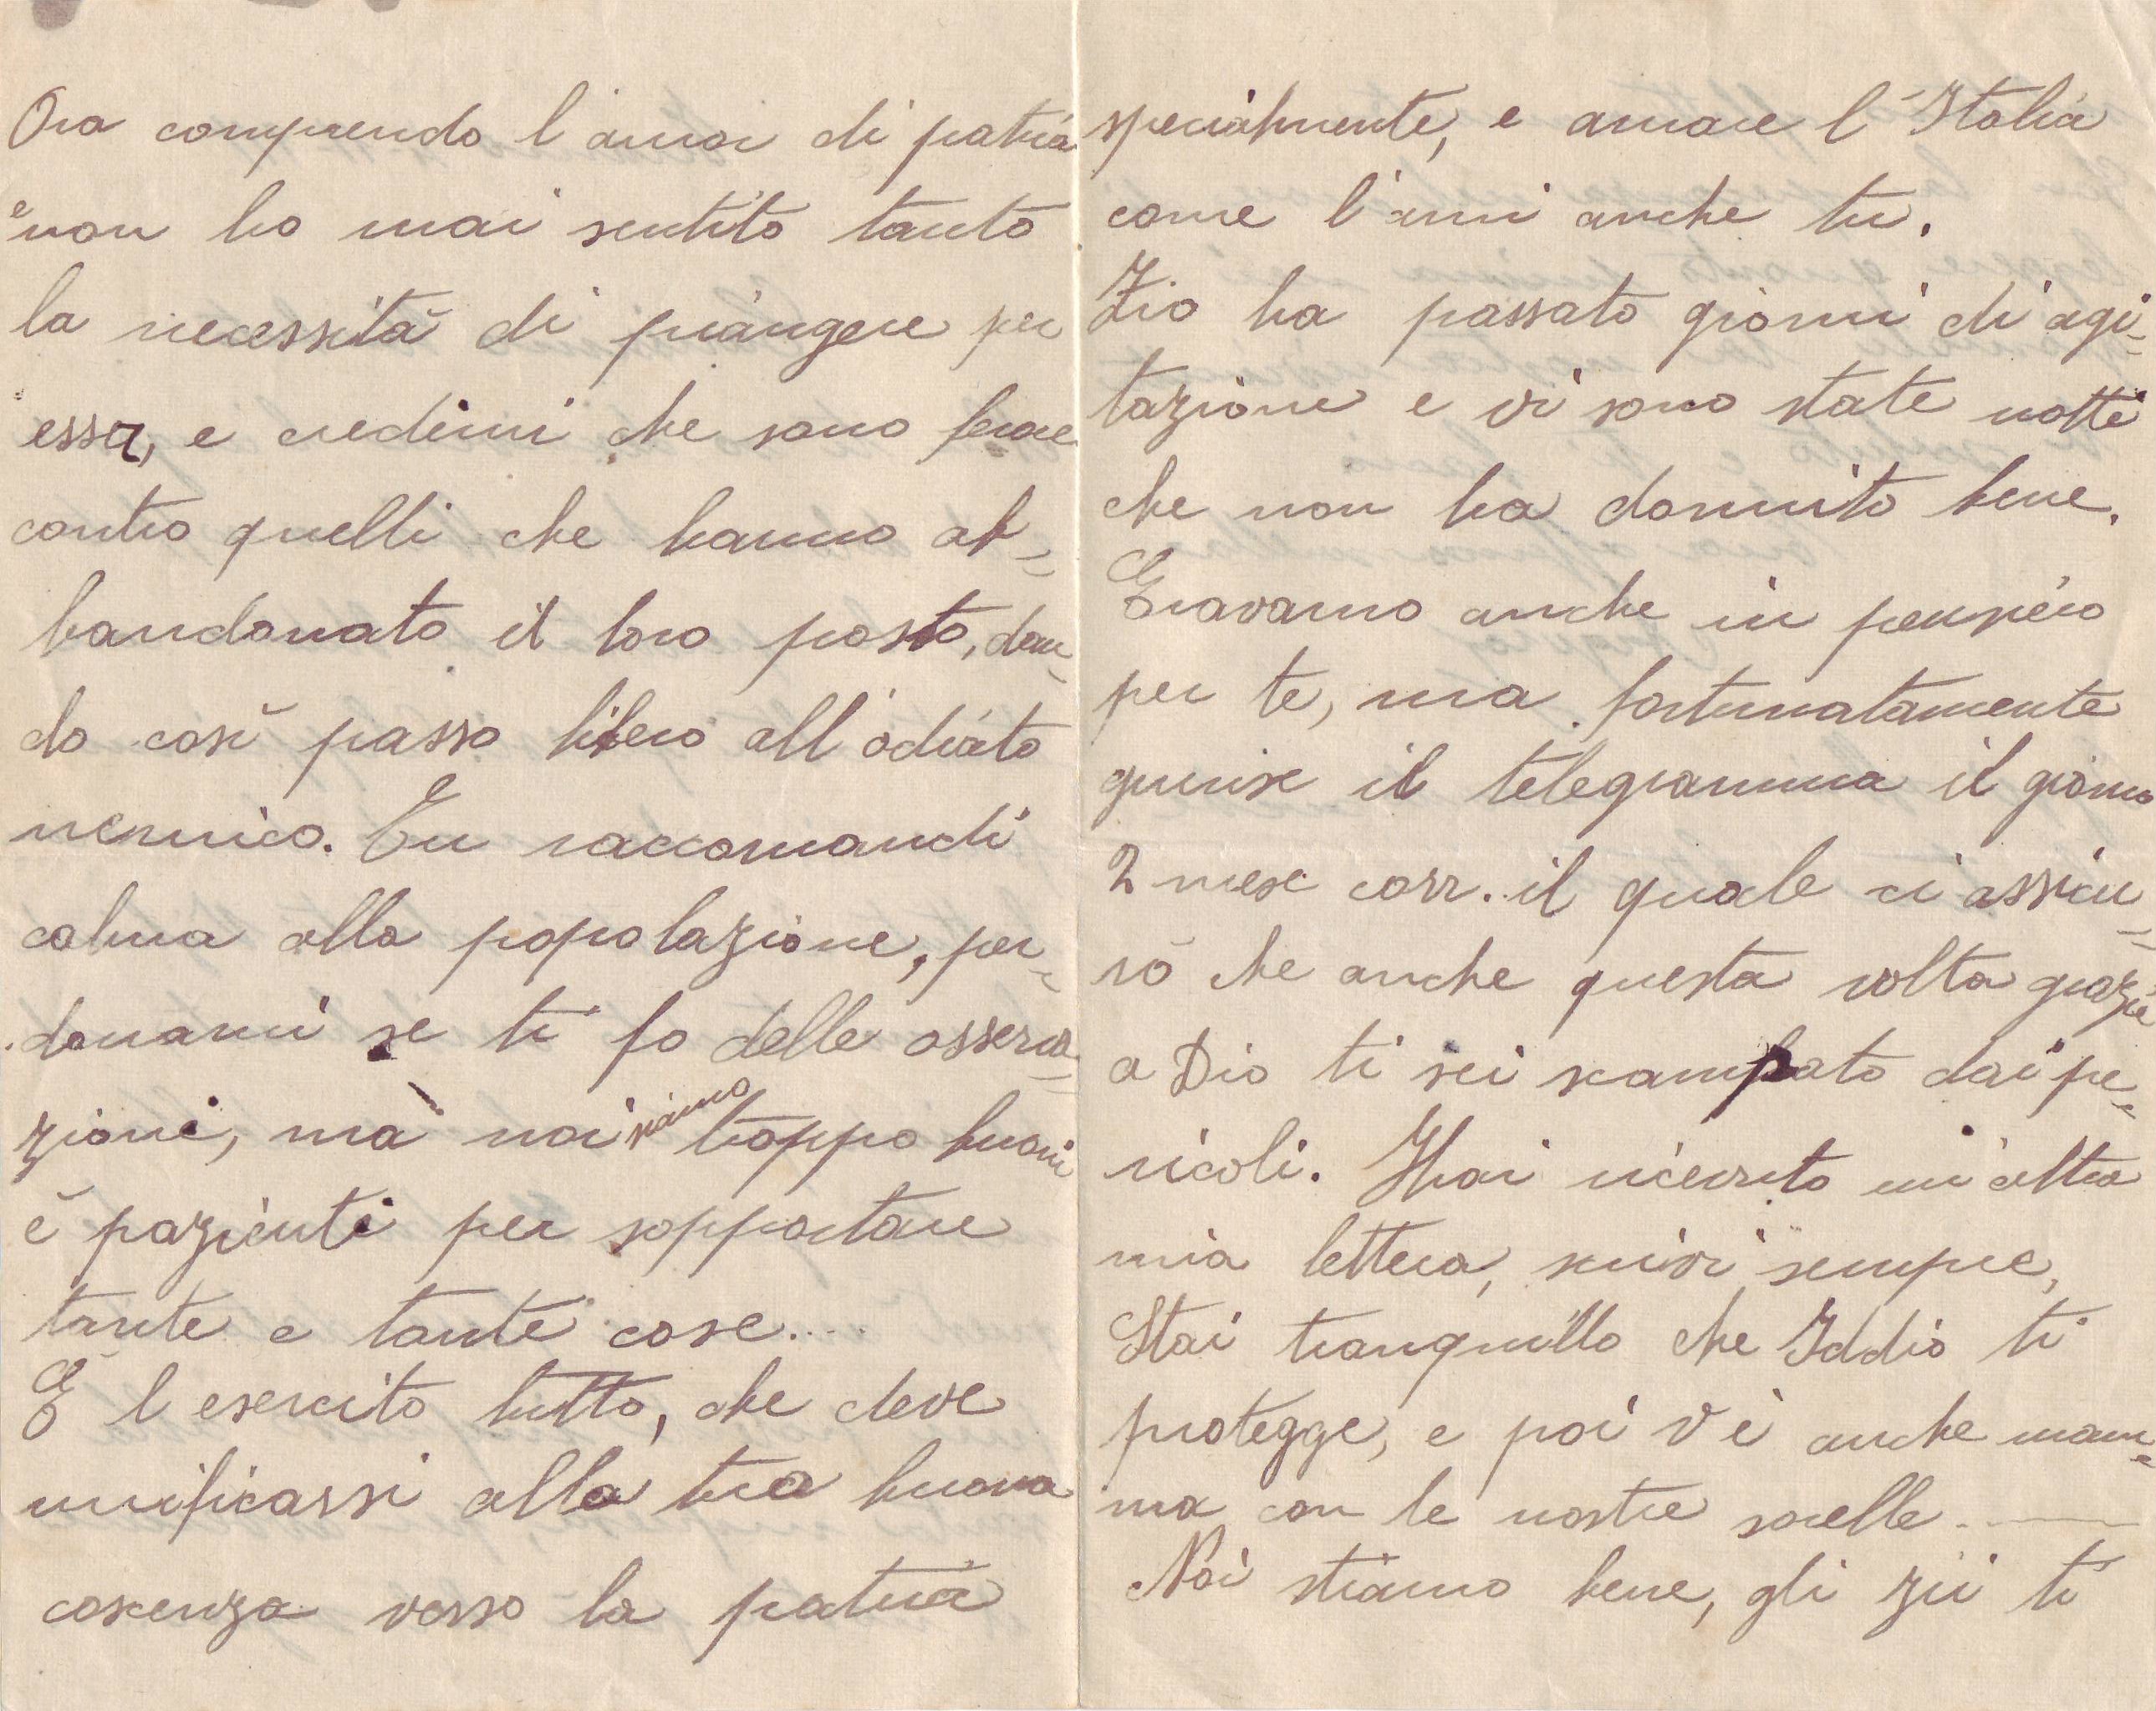 Ora comprendo l'amor di patria
e non ho mai sentito tanto
la necessità di piangere per
essa, e credimi che sono feroce
contro quelli che hanno ab=
bandonato il loro posto, dan=
do così passo libero all'odiato
nemico. Tu raccomandi
calma alla popolazione, per=
donami se ti fo delle osserva=
zioni, ma noi siamo troppo buoni
e pazienti per sopportare
tante e tante cose....
È l esercito tutto, che deve
unificarsi alla tua buona
coscenza verso la patria
specialmente, e amare l'Italia
come l'ami anche tu.
Zio ha passato giorni di agi=
tazione e vi sono state notti
che non ha dormito bene.
Eravamo anche in pensiero
per te, ma fortunatamente
giunse il telegramma il giorno
2 mese corr. il quale ci assicu=
rò che anche questa volta grazie
a Dio ti sei scampato dai pe=
ricoli. Hai ricevuto un'altra
mia lettera, scrivi sempre,
Stai tranquillo che Iddio ti
protegge, e poi v'è anche mam=
ma con le nostre sorelle ....
Noi stiamo bene, gli zii ti